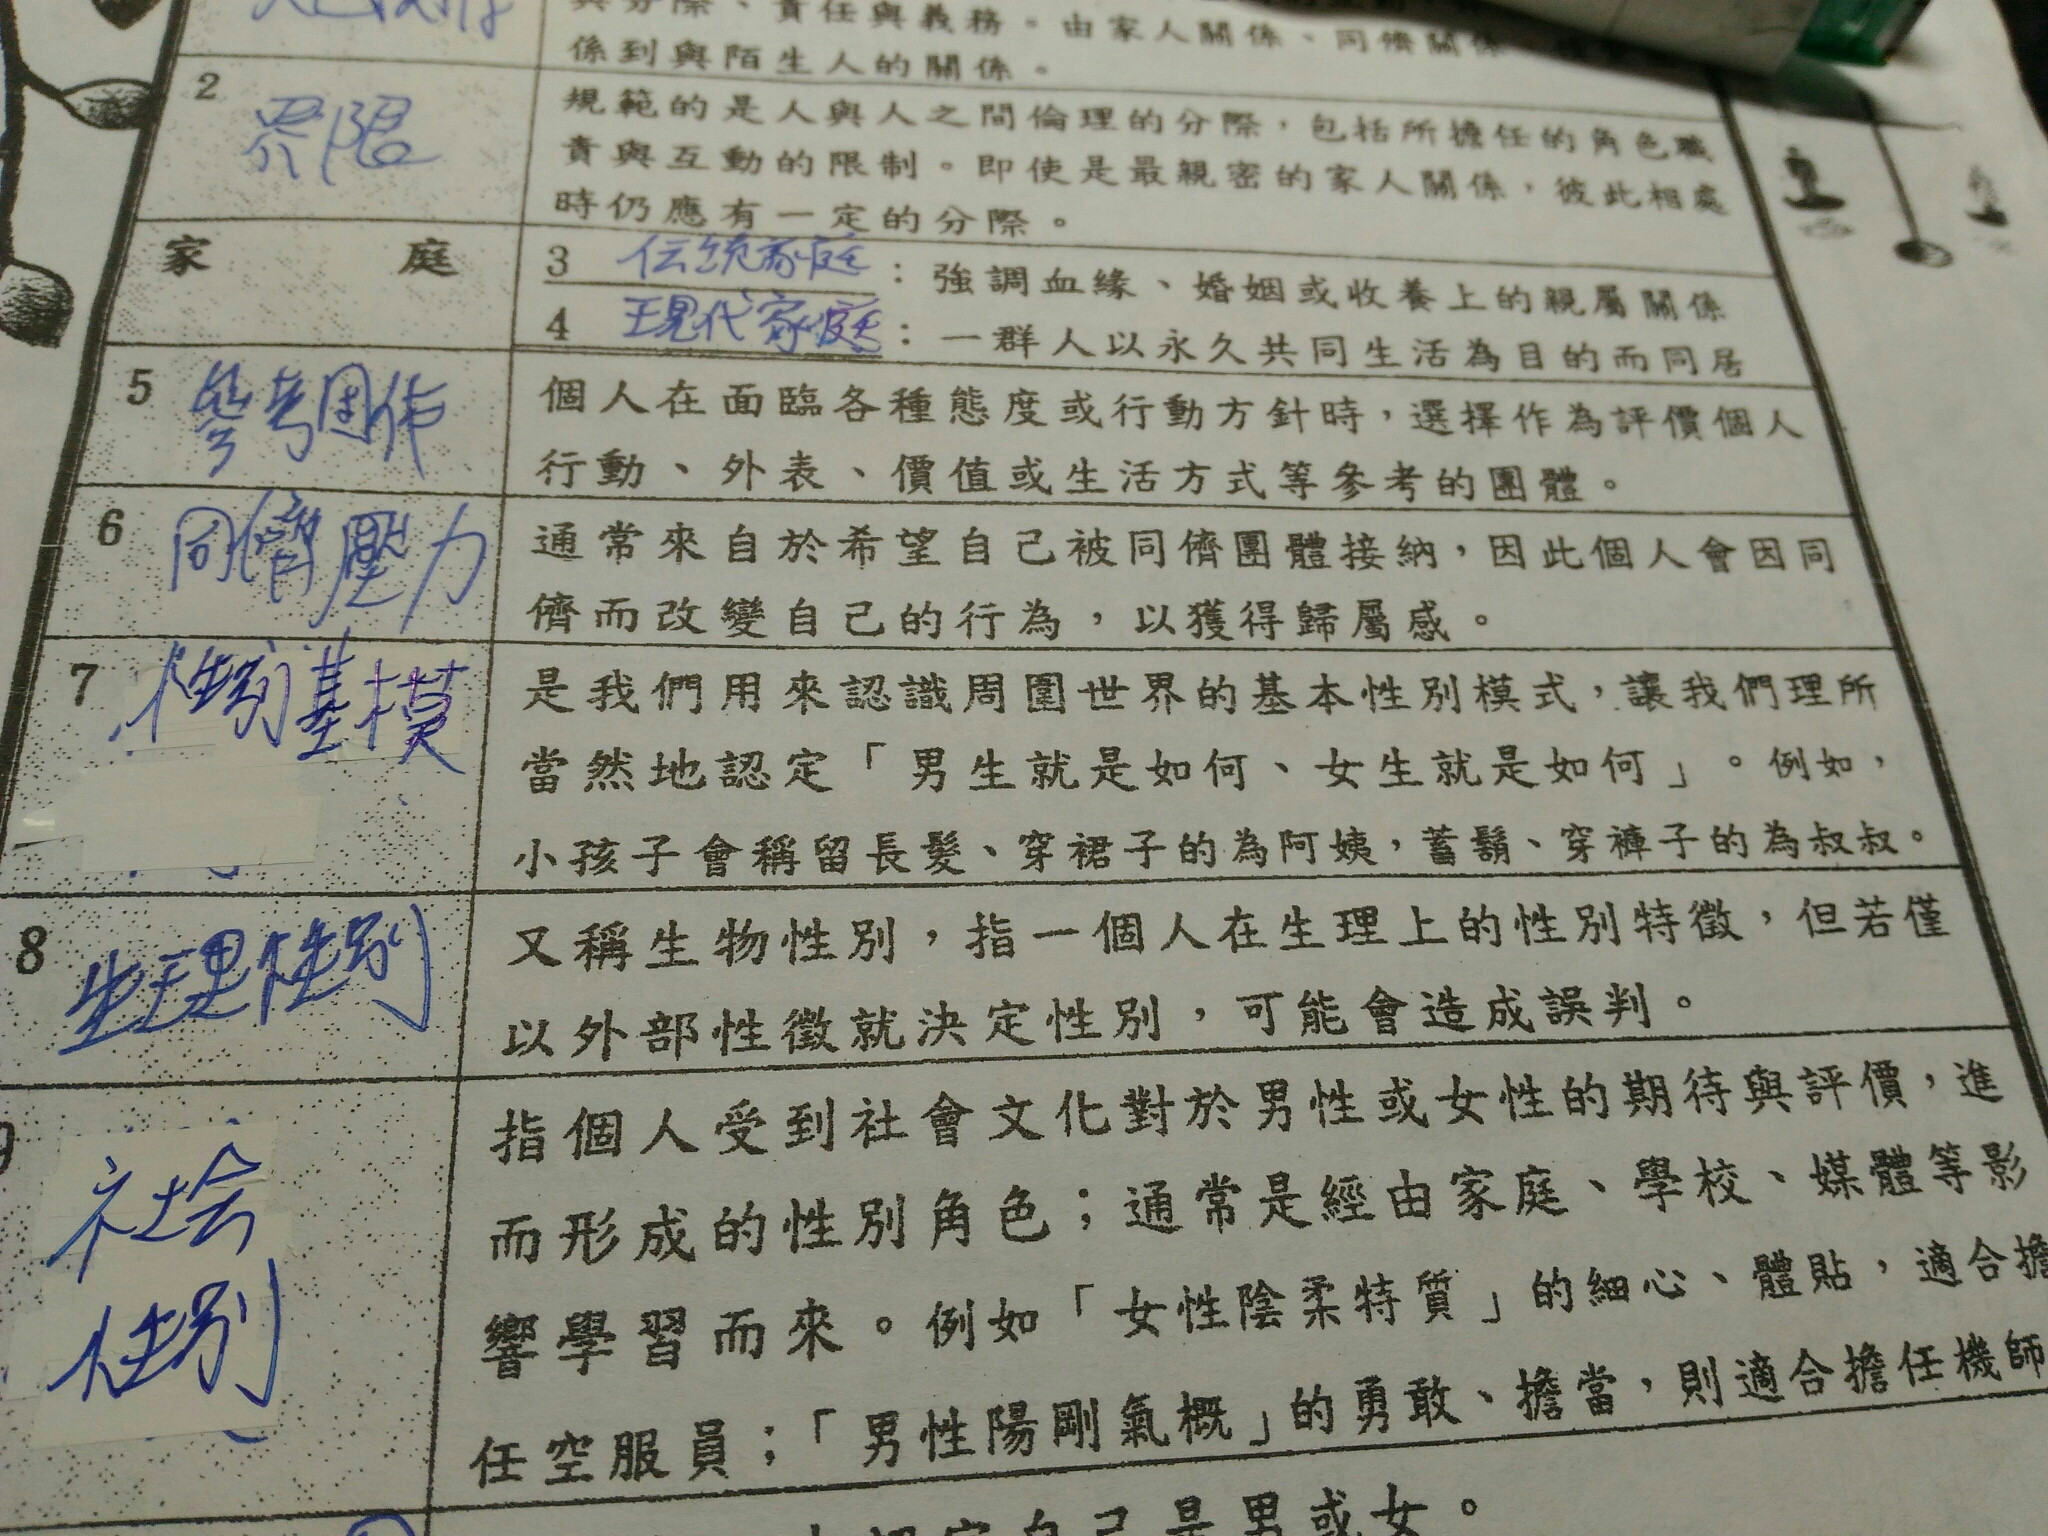 與分際、責任與義務。由家人關係、同儕關係、
係到與陌生人的關係。
2 界限
規範的是人與人之間倫理的分際，包括所擔任的角色職
責與互動的限制。即使是最親密的家人關係，彼此相處
時仍應有一定的分際。
家 庭
3 伝統家庭：強調血緣、婚姻或收養上的親屬關係
4 現代家庭：一群人以永久共同生活為目的而同居
5 參考団体
個人在面臨各種態度或行動方針時，選擇作為評價個人
行動、外表、價值或生活方式等參考的團體。
6 同儕壓力
通常來自於希望自己被同儕團體接納，因此個人會因同
儕而改變自己的行為，以獲得歸屬感。
7 性別基模
是我們用來認識周圍世界的基本性別模式，讓我們理所
當然地認定「男生就是如何、女生就是如何」。例如，
小孩子會稱留長髮、穿裙子的為阿姨，蓄鬍、穿褲子的為叔叔。
8 生理性別
又稱生物性別，指一個人在生理上的性別特徵，但若僅
以外部性徵就決定性別，可能會造成誤判。
社会
性別
指個人受到社會文化對於男性或女性的期待與評價，進
而形成的性別角色；通常是經由家庭、學校、媒體等影
響學習而來。例如「女性陰柔特質」的細心、體貼，適合擔
任空服員；「男性陽剛氣概」的勇敢、擔當，則適合擔任機師
認定自己是男或女。